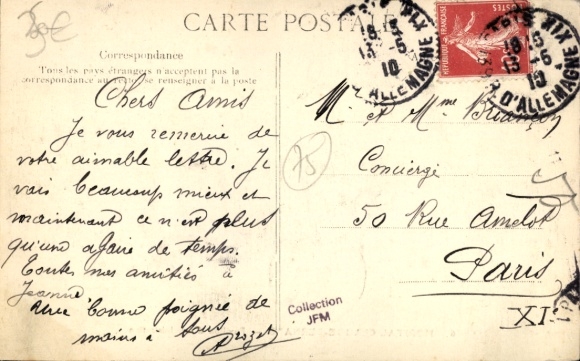 CARTE POSTALE
Correspondance
Tous les pays étrangers n'acceptent pas la
correspondance au se renseigner à la poste
Chers Amis
Je vous remercie de
votre aimable lettre. Je
vais beaucoup mieux et
maintenant ce n'est plus
qu'une afaire de temps.
Toutes mes amitiés à
Jeanne
Une bonne poignée de
mains à tous
PARIS XIX
18 15
13 - 5
10
D'ALLEMAGNE
RÉPUBLIQUE FRANÇAISE
POSTES
PARIS XIX
18 15
13 - 5
10
D'ALLEMAGNE
Mr et Mme Briançon
Concierge
50 Rue Amelot
Paris
XI
75
Collection
JFM